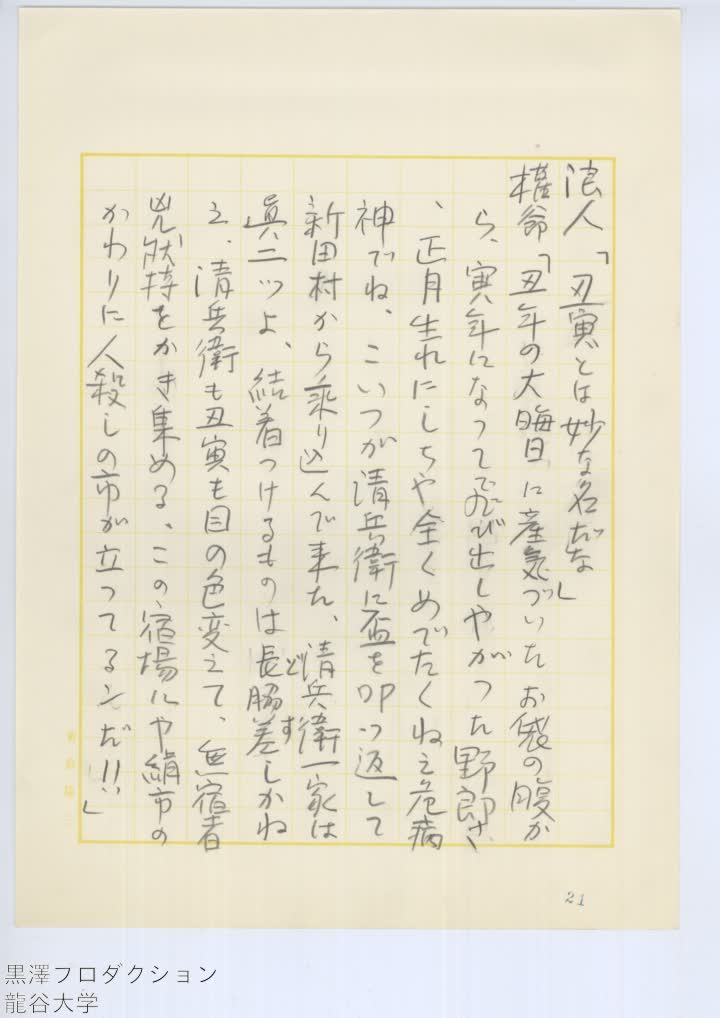 浪人「丑寅とは妙な名だな」
権爺「丑年の大晦日に産気づいたお袋の腹か
ら、寅年になつて飛び出しやがつた野郎さ
、正月生れにしちや全くめでたくねえ危病
神でね、こいつが清兵衛に盃を叩つ返して
新田村から乗り込んで来た、清兵衛一家は
眞二ツよ、結着つけるものは長脇差しかね
え、清兵衛も丑寅も目の色変えて、無宿者
兇状持をかき集める、この宿場にや絹市の
かわりに人殺しの市が立つてるンだ!!」
どす
21
黒澤プロダクション
龍谷大学